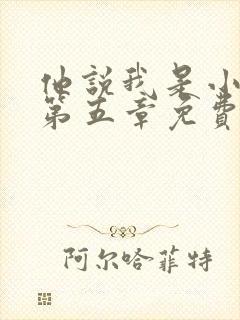 他説我是小
第五章免費
阿尔哈菲特